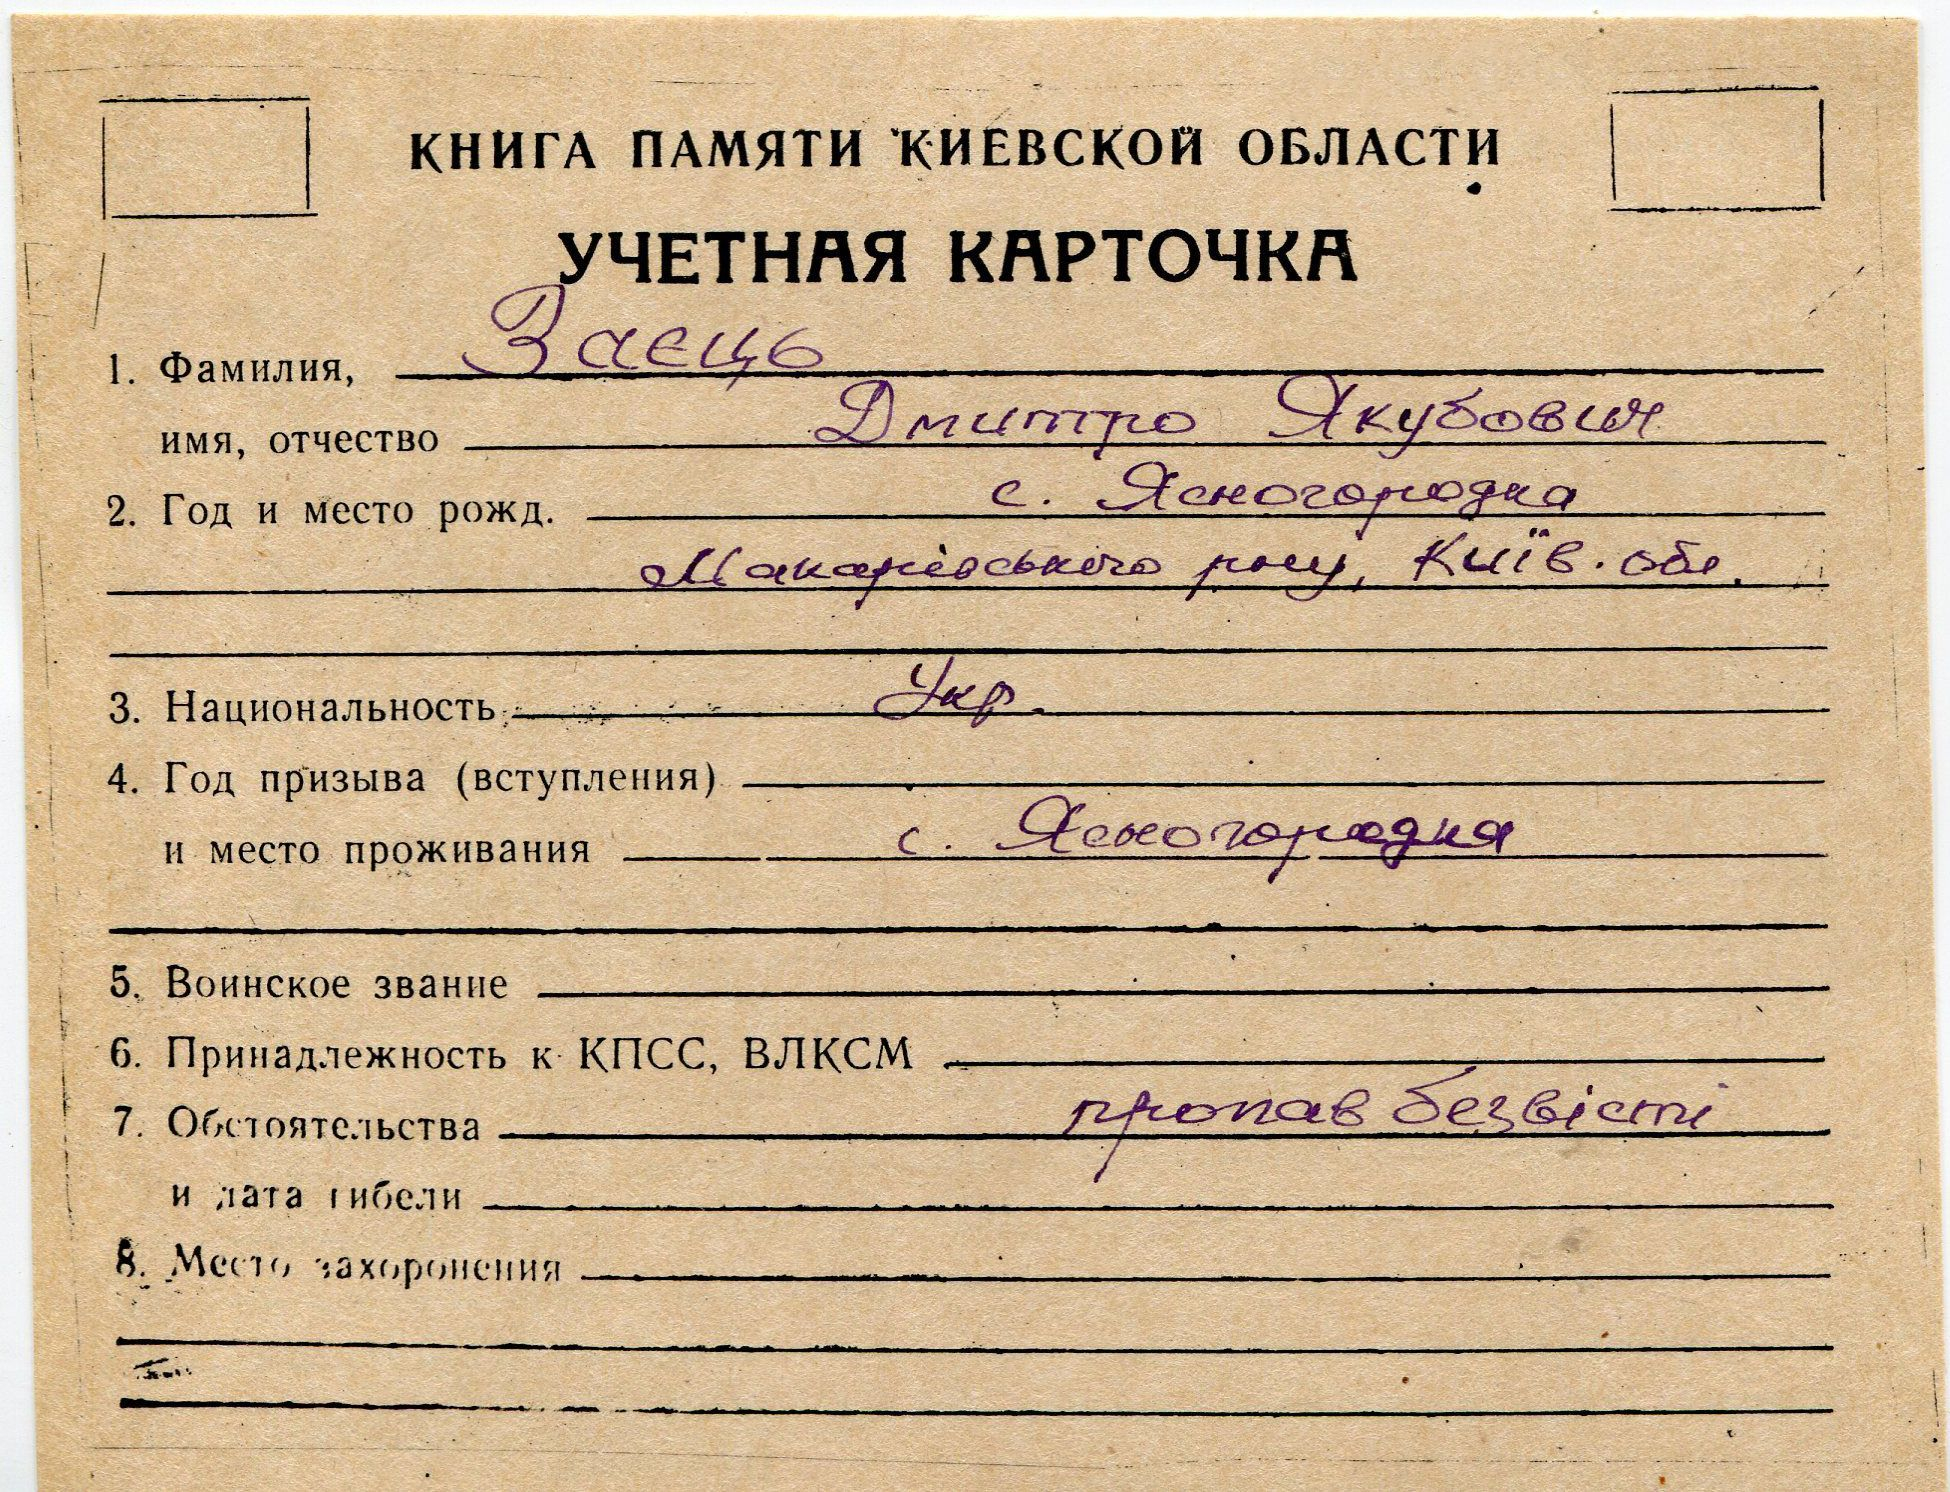 КНИГА ПАМЯТИ КИЕВСКОЙ ОБЛАСТИ
УЧЕТНАЯ КАРТОЧКА
1. Фамилия, Заєць
имя, отчество Дмитро Якубович
2. Год и место рожд. с. Ясногородка
Макарівського р-ну, Київ. обл.
3. Национальность Укр.
4. Год призыва (вступления)
и место проживания с. Ясногородка
5. Воинское звание
6. Принадлежность к КПСС, ВЛКСМ
7. Обстоятельства пропав безвісті
и дата гибели
8. Место захоронения